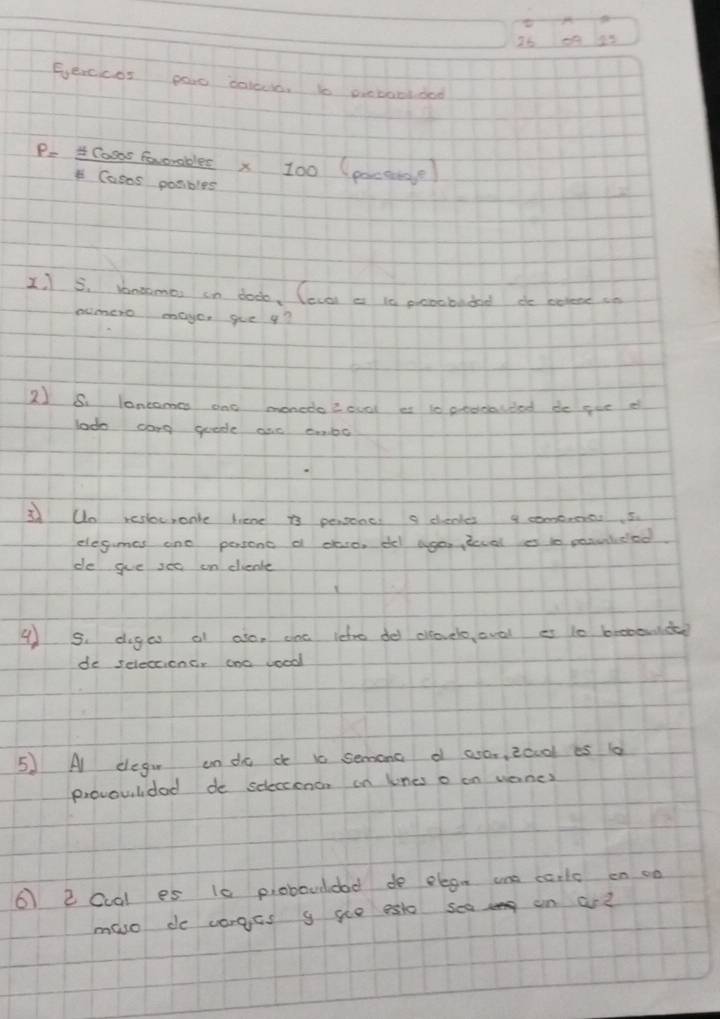 D M A
26 09 23
Ejercicios para calcular la probabilidad
P= # Casos Favorables x 100 (porcentaje)
# Casos posibles
1.) Si lanzamos un dado, ¿cual es la probabilidad de obtener un
numero mayor que 4?
2) Si lanzamos una moneda ¿cual es la probabilidad de que el
lado cara quede asia arriba
3) Un restaurante tiene 13 personas 9 clientes 4 camareros, si
elegimos una persona al azar, ¿cual es la
de que sea un cliente
4) Si digas al asar una letra del, cual es la
de seleccionar una vocal
5) Al elegir un dia de la semana al asar, ¿cual es la
provovilidad de seleccionar un lunes o un viernes
6) ¿Cual es la probavilidad de elegir una carta en un
maso de varajas y que esta sea un as?